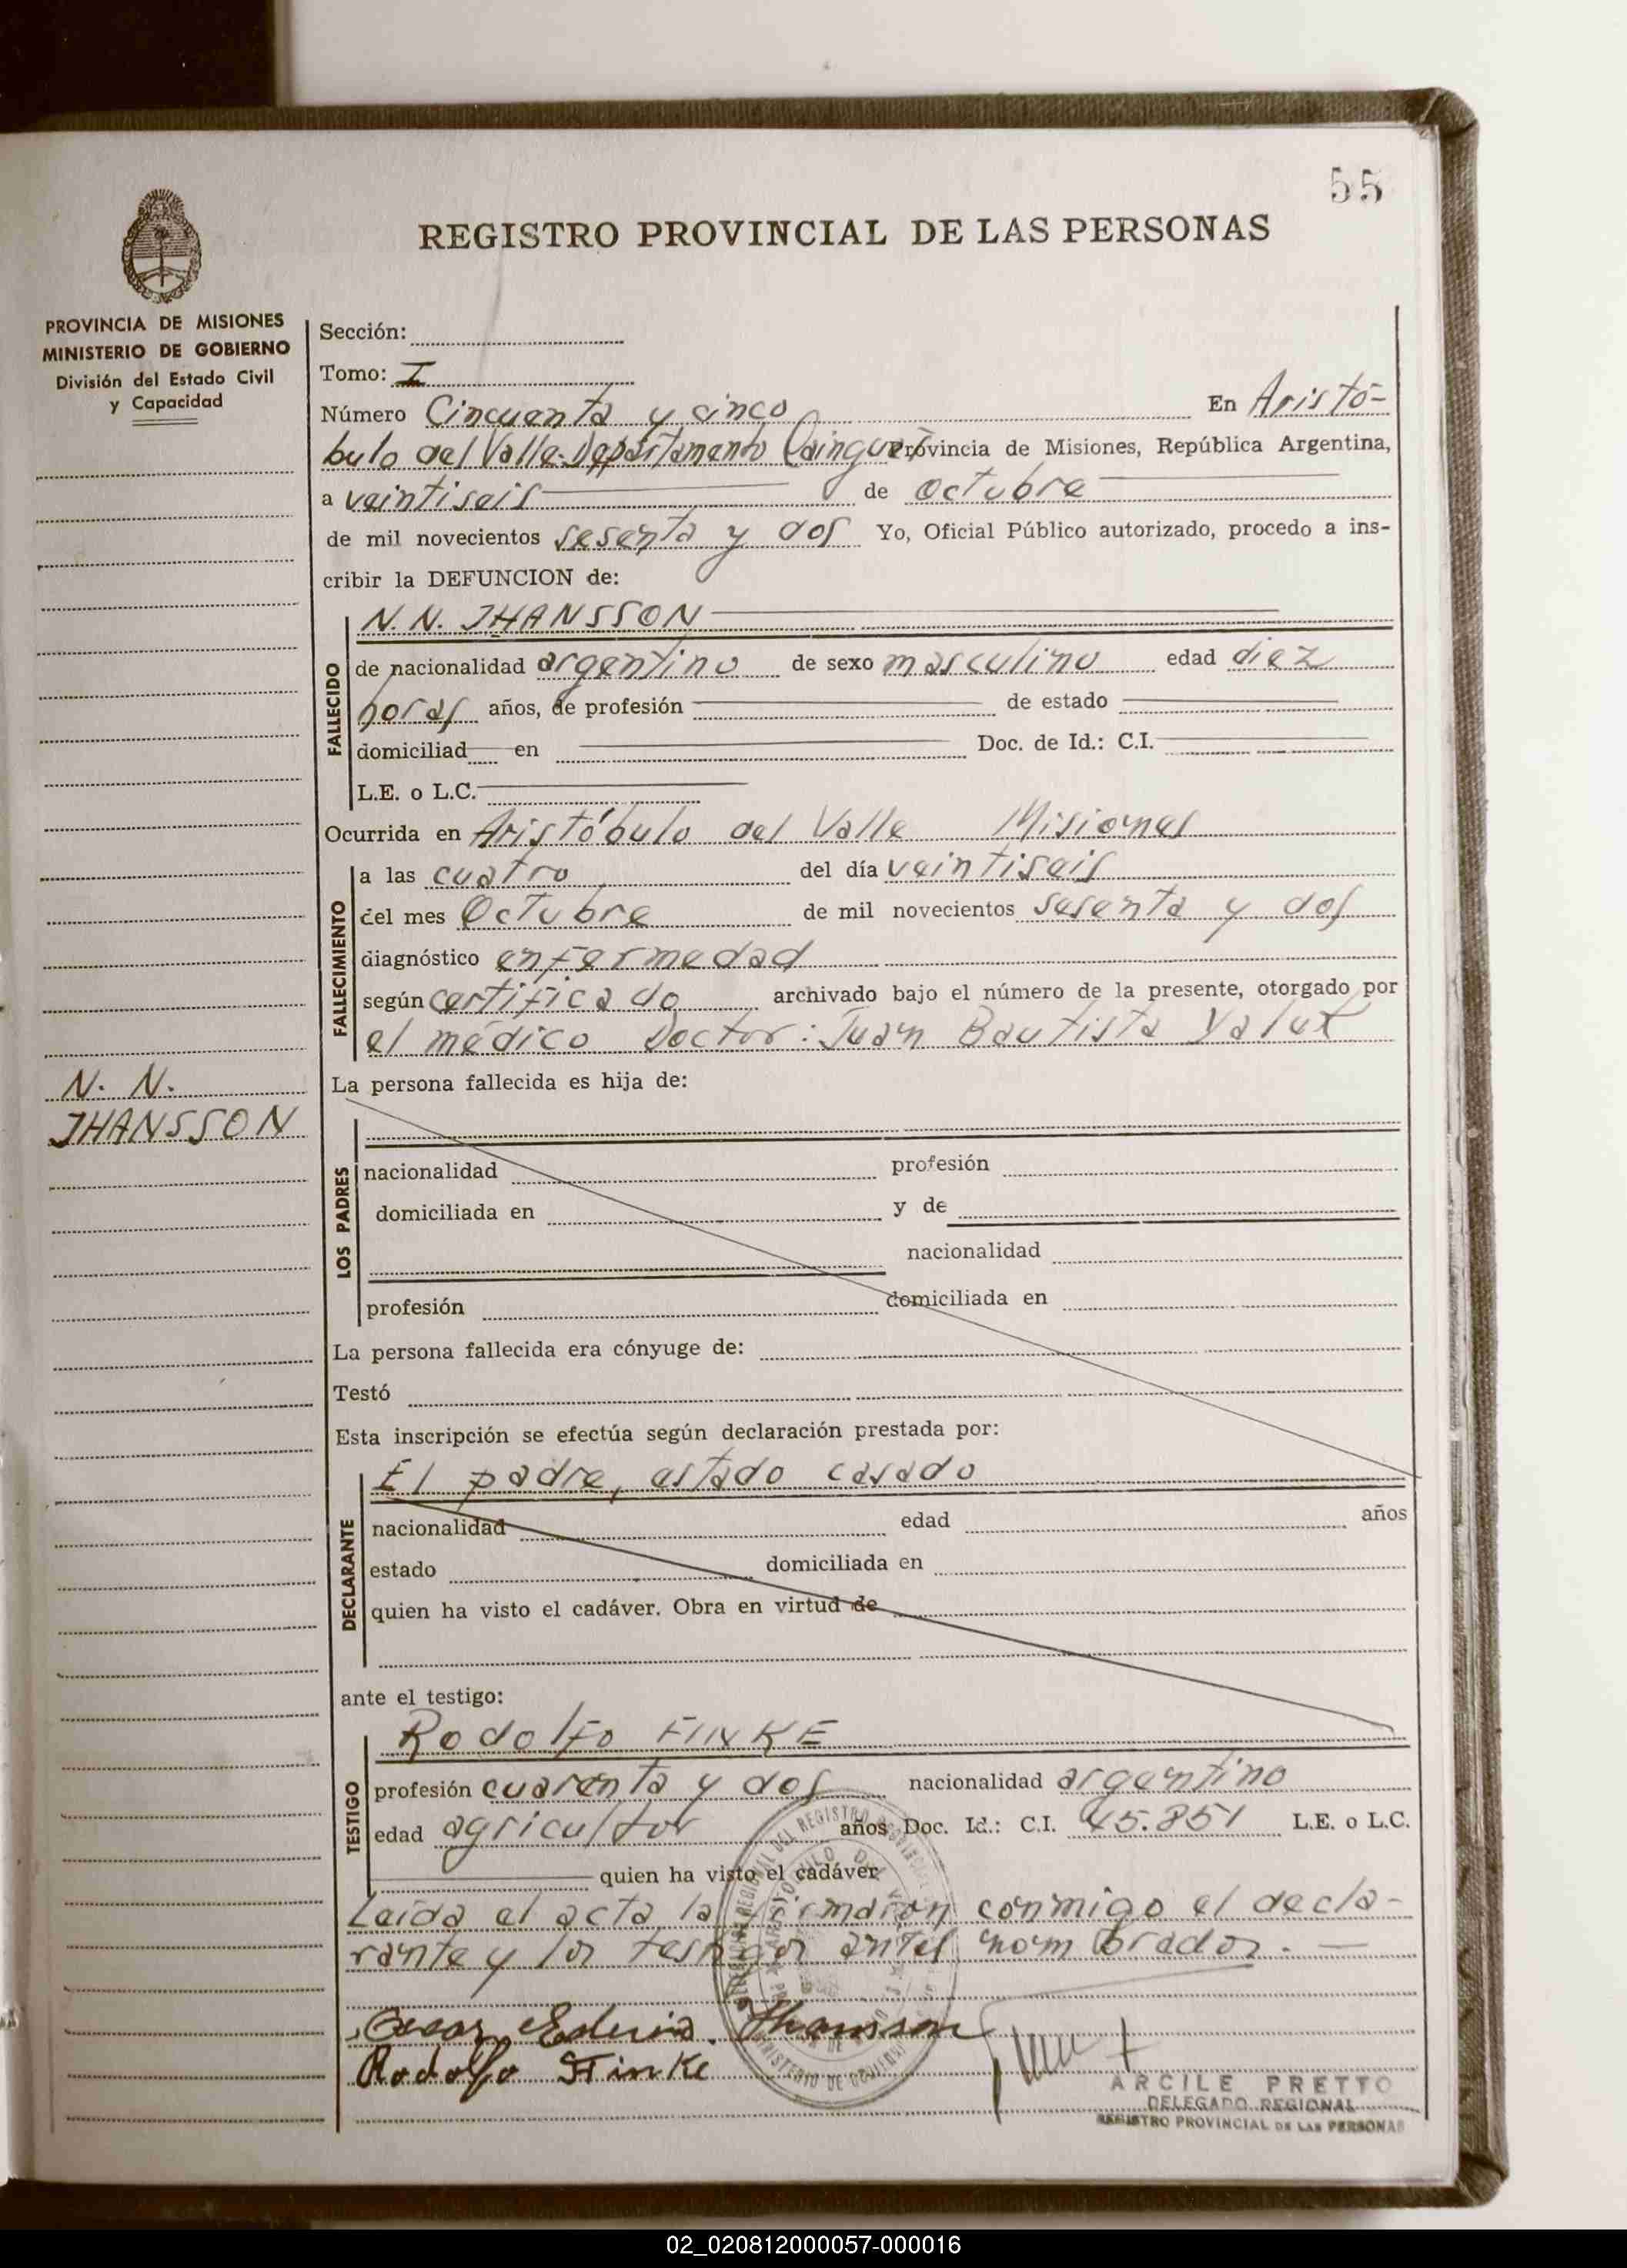 55
REGISTRO PROVINCIAL DE LAS PERSONAS
PROVINCIA DE MISIONES
MINISTERIO DE GOBIERNO
División del Estado Civil
y Capacidad
Sección:
Tomo: I
Número Cincuenta y cinco En Aristó-
bulo del Valle-Departamento Cainguás Provincia de Misiones, República Argentina,
a veintiseis de Octubre
de mil novecientos sesenta y dos Yo, Oficial Público autorizado, procedo a ins-
cribir la DEFUNCION de:
FALLECIDO
N. N. JHANSSON
de nacionalidad argentino de sexo masculino edad diez
horas años, de profesión de estado
domiciliad en Doc. de Id.: C.I.
L.E. o L.C.
Ocurrida en Aristóbulo del Valle Misiones
FALLECIMIENTO
a las cuatro del día veintiseis
del mes Octubre de mil novecientos sesenta y dos
diagnóstico enfermedad
según certificado archivado bajo el número de la presente, otorgado por
el médico Doctor: Juan Bautista Yalut
N. N.
JHANSSON
La persona fallecida es hija de:
LOS PADRES
nacionalidad profesión
domiciliada en y de
nacionalidad
profesión domiciliada en
La persona fallecida era cónyuge de:
Testó
Esta inscripción se efectúa según declaración prestada por:
DECLARANTE
El padre, estado casado
nacionalidad edad años
estado domiciliada en
quien ha visto el cadáver. Obra en virtud de
ante el testigo:
TESTIGO
Rodolfo FINKE
profesión cuarenta y dos nacionalidad argentino
edad agricultor años Doc. Id.: C.I. 45.851 L.E. o L.C.
quien ha visto el cadáver
Leída el acta la firmaron conmigo el decla-
rante y los testigos antes nombrados. —
Jhansson
Rodolfo Finke
ARCILE PRETTO
DELEGADO REGIONAL
REGISTRO PROVINCIAL DE LAS PERSONAS
02_020812000057-000016